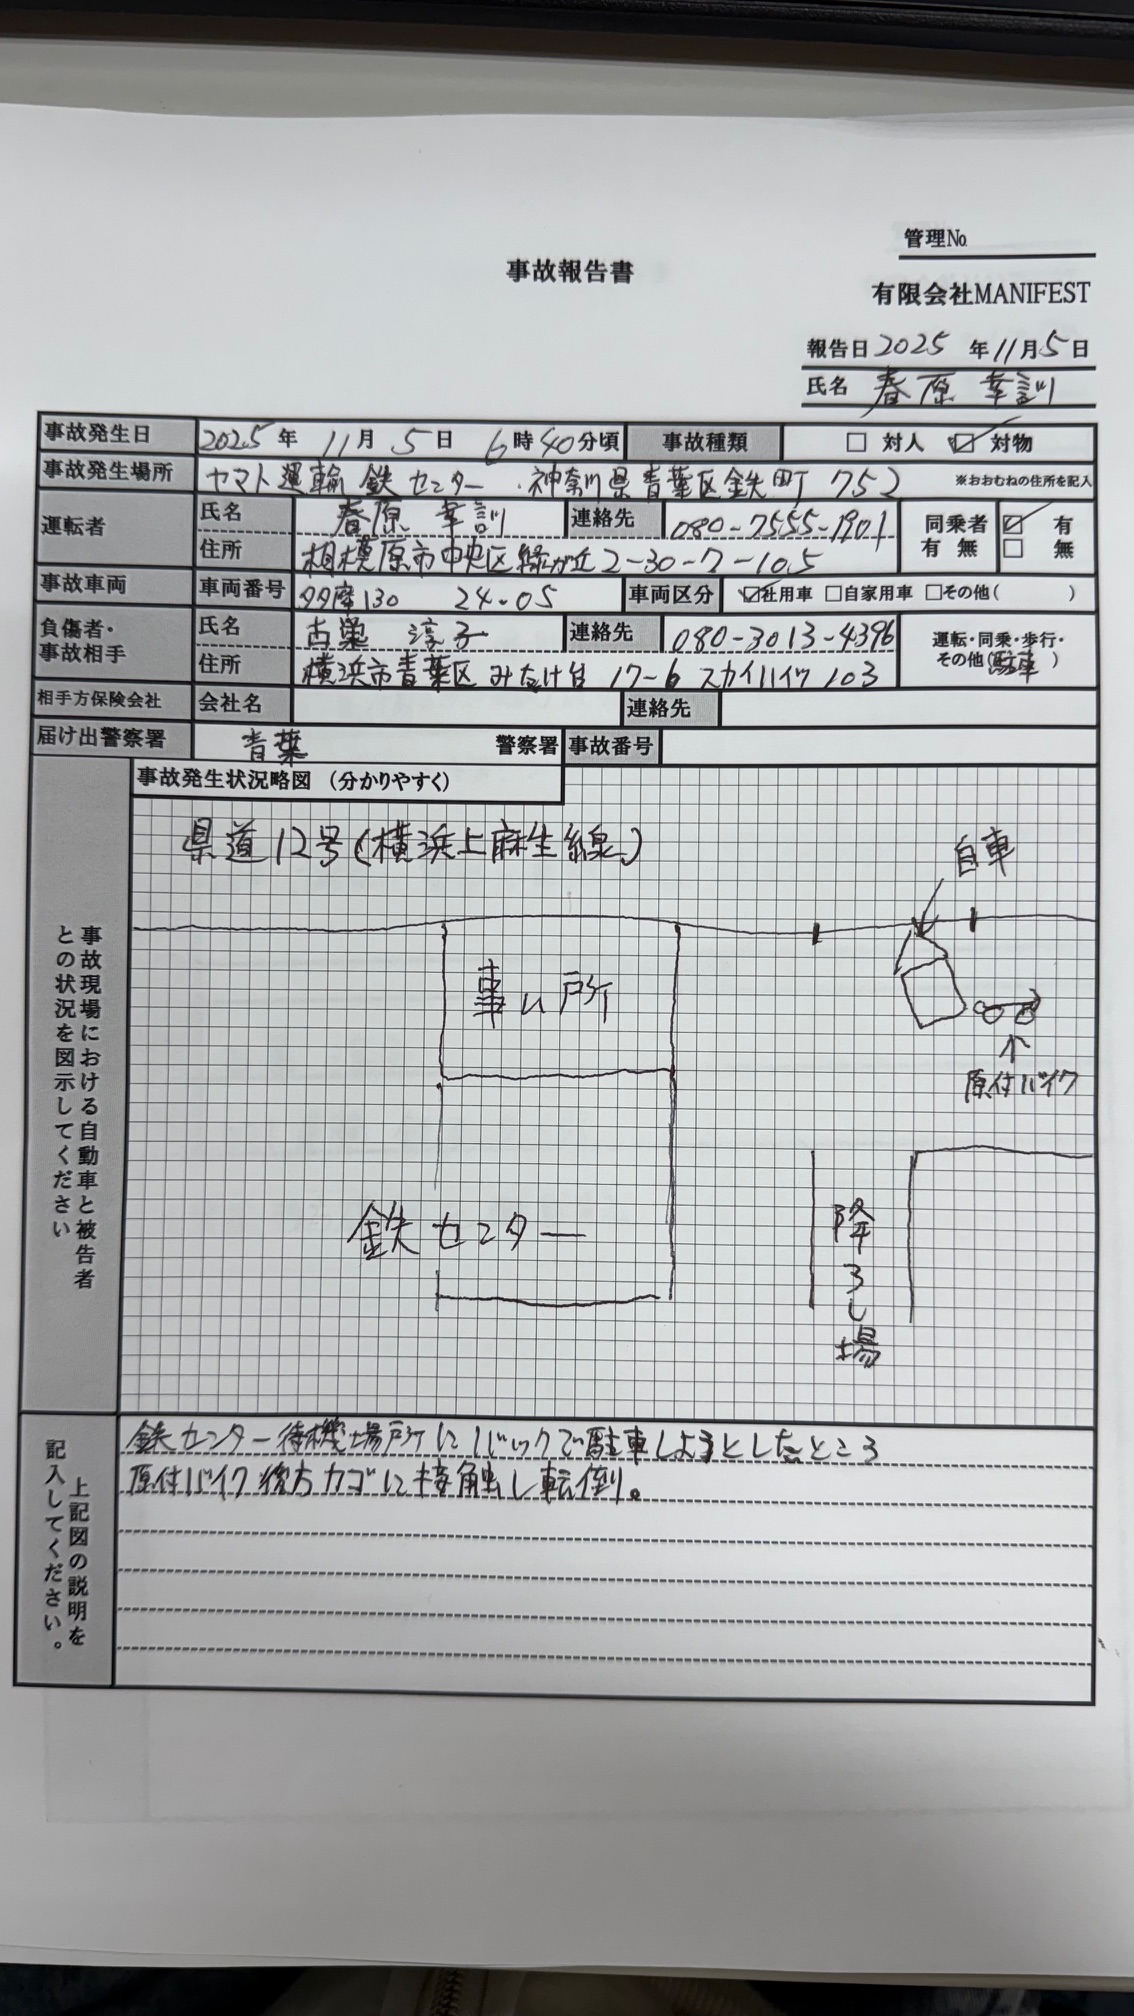 管理№
事故報告書
有限会社MANIFEST
報告日 2025 年 11月 5日
氏名 春原 幸訓
事故発生日 2025年 11月 5日 6時40分頃 事故種類 □ 対人 ☑ 対物
事故発生場所 ヤマト運輸 鉄センター 神奈川県青葉区鉄町 752 ※おおむねの住所を記入
運転者 氏名 春原 幸訓 連絡先 080-7555-1901 同乗者有無 ☑ 有 □ 無
住所 相模原市中央区緑が丘2-30-7-105
事故車両 車両番号 多摩130 24-05 車両区分 ☑社用車 □自家用車 □その他( )
負傷者・事故相手 氏名 古巣 淳子 連絡先 080-3013-4396 運転・同乗・歩行・その他(駐車)
住所 横浜市青葉区 みたけ台 17-6 スカイハイツ 103
相手方保険会社 会社名 連絡先
届け出警察署 青葉 警察署 事故番号
事故発生状況略図（分かりやすく）
事故現場における自動車と被告者との状況を図示してください
県道12号(横浜上麻生線)
自車
事ム所
原付バイク
鉄センター
降ろし場
上記図の説明を記入してください。
鉄センター待機場所にバックで駐車しようとしたところ
原付バイク後方カゴに接触し転倒。